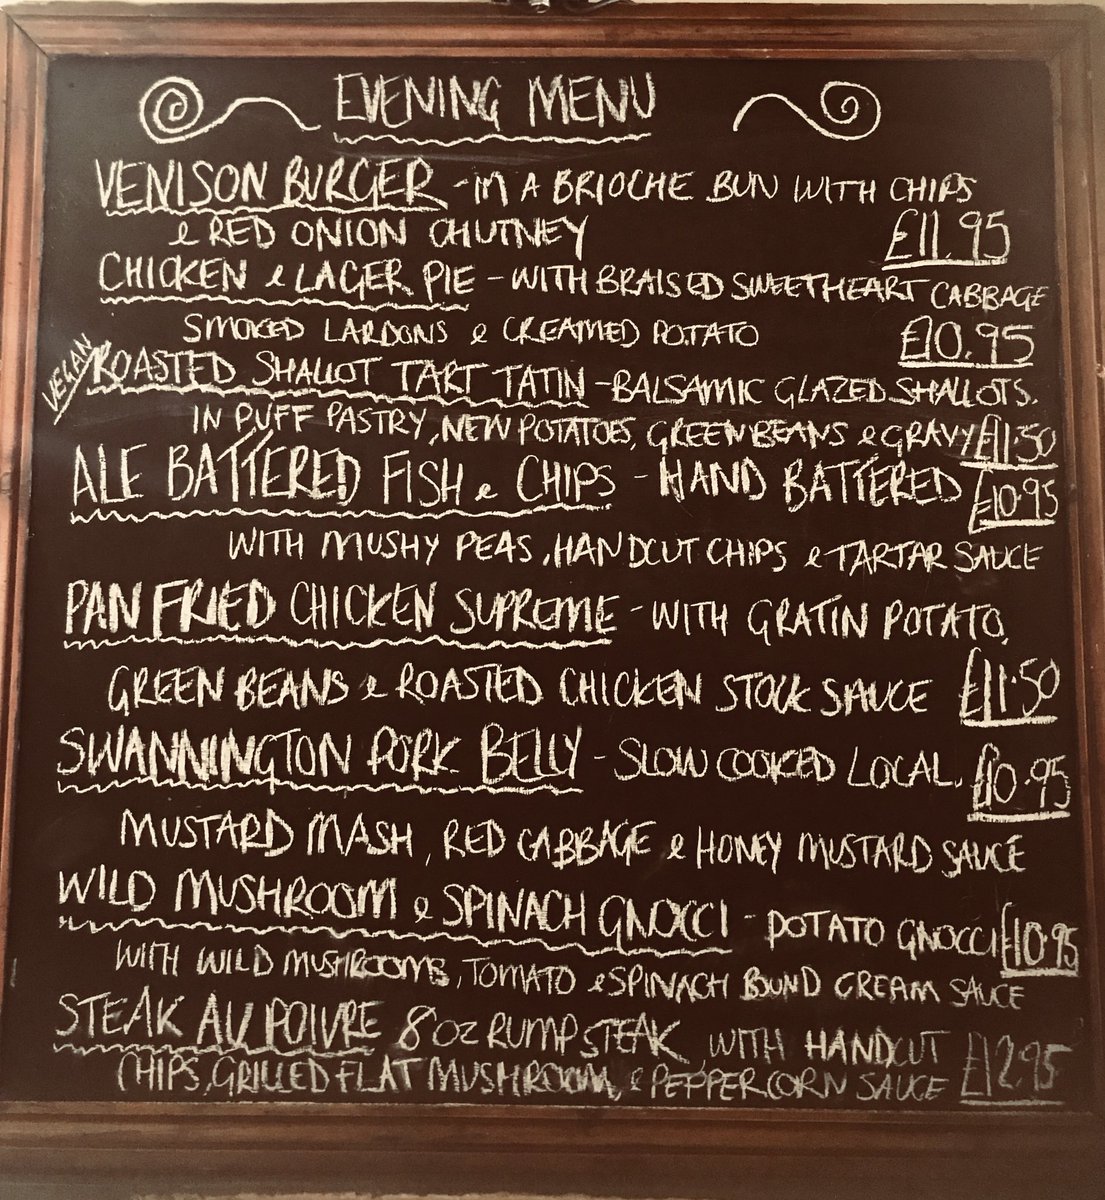 EVENING MENU
VENISON BURGER - IN A BRIOCHE BUN WITH CHIPS
& RED ONION CHUTNEY £11.95
CHICKEN & LAGER PIE - WITH BRAISED SWEETHEART CABBAGE
SMOKED LARDONS & CREAMED POTATO £10.95
VEGAN ROASTED SHALLOT TART TATIN - BALSAMIC GLAZED SHALLOTS.
IN PUFF PASTRY, NEW POTATOES, GREEN BEANS & GRAVY £11.50
ALE BATTERED FISH & CHIPS - HAND BATTERED £10.95
WITH MUSHY PEAS, HANDCUT CHIPS & TARTAR SAUCE
PAN FRIED CHICKEN SUPREME - WITH GRATIN POTATO,
GREEN BEANS & ROASTED CHICKEN STOCK SAUCE £11.50
SWANNINGTON PORK BELLY - SLOW COOKED LOCAL, £10.95
MUSTARD MASH, RED CABBAGE & HONEY MUSTARD SAUCE
WILD MUSHROOM & SPINACH GNOCCI - POTATO GNOCCI £10.95
WITH WILD MUSHROOMS, TOMATO & SPINACH BOUND CREAM SAUCE
STEAK AU POIVRE 8OZ RUMP STEAK, WITH HANDCUT
CHIPS, GRILLED FLAT MUSHROOM, & PEPPERCORN SAUCE £12.95